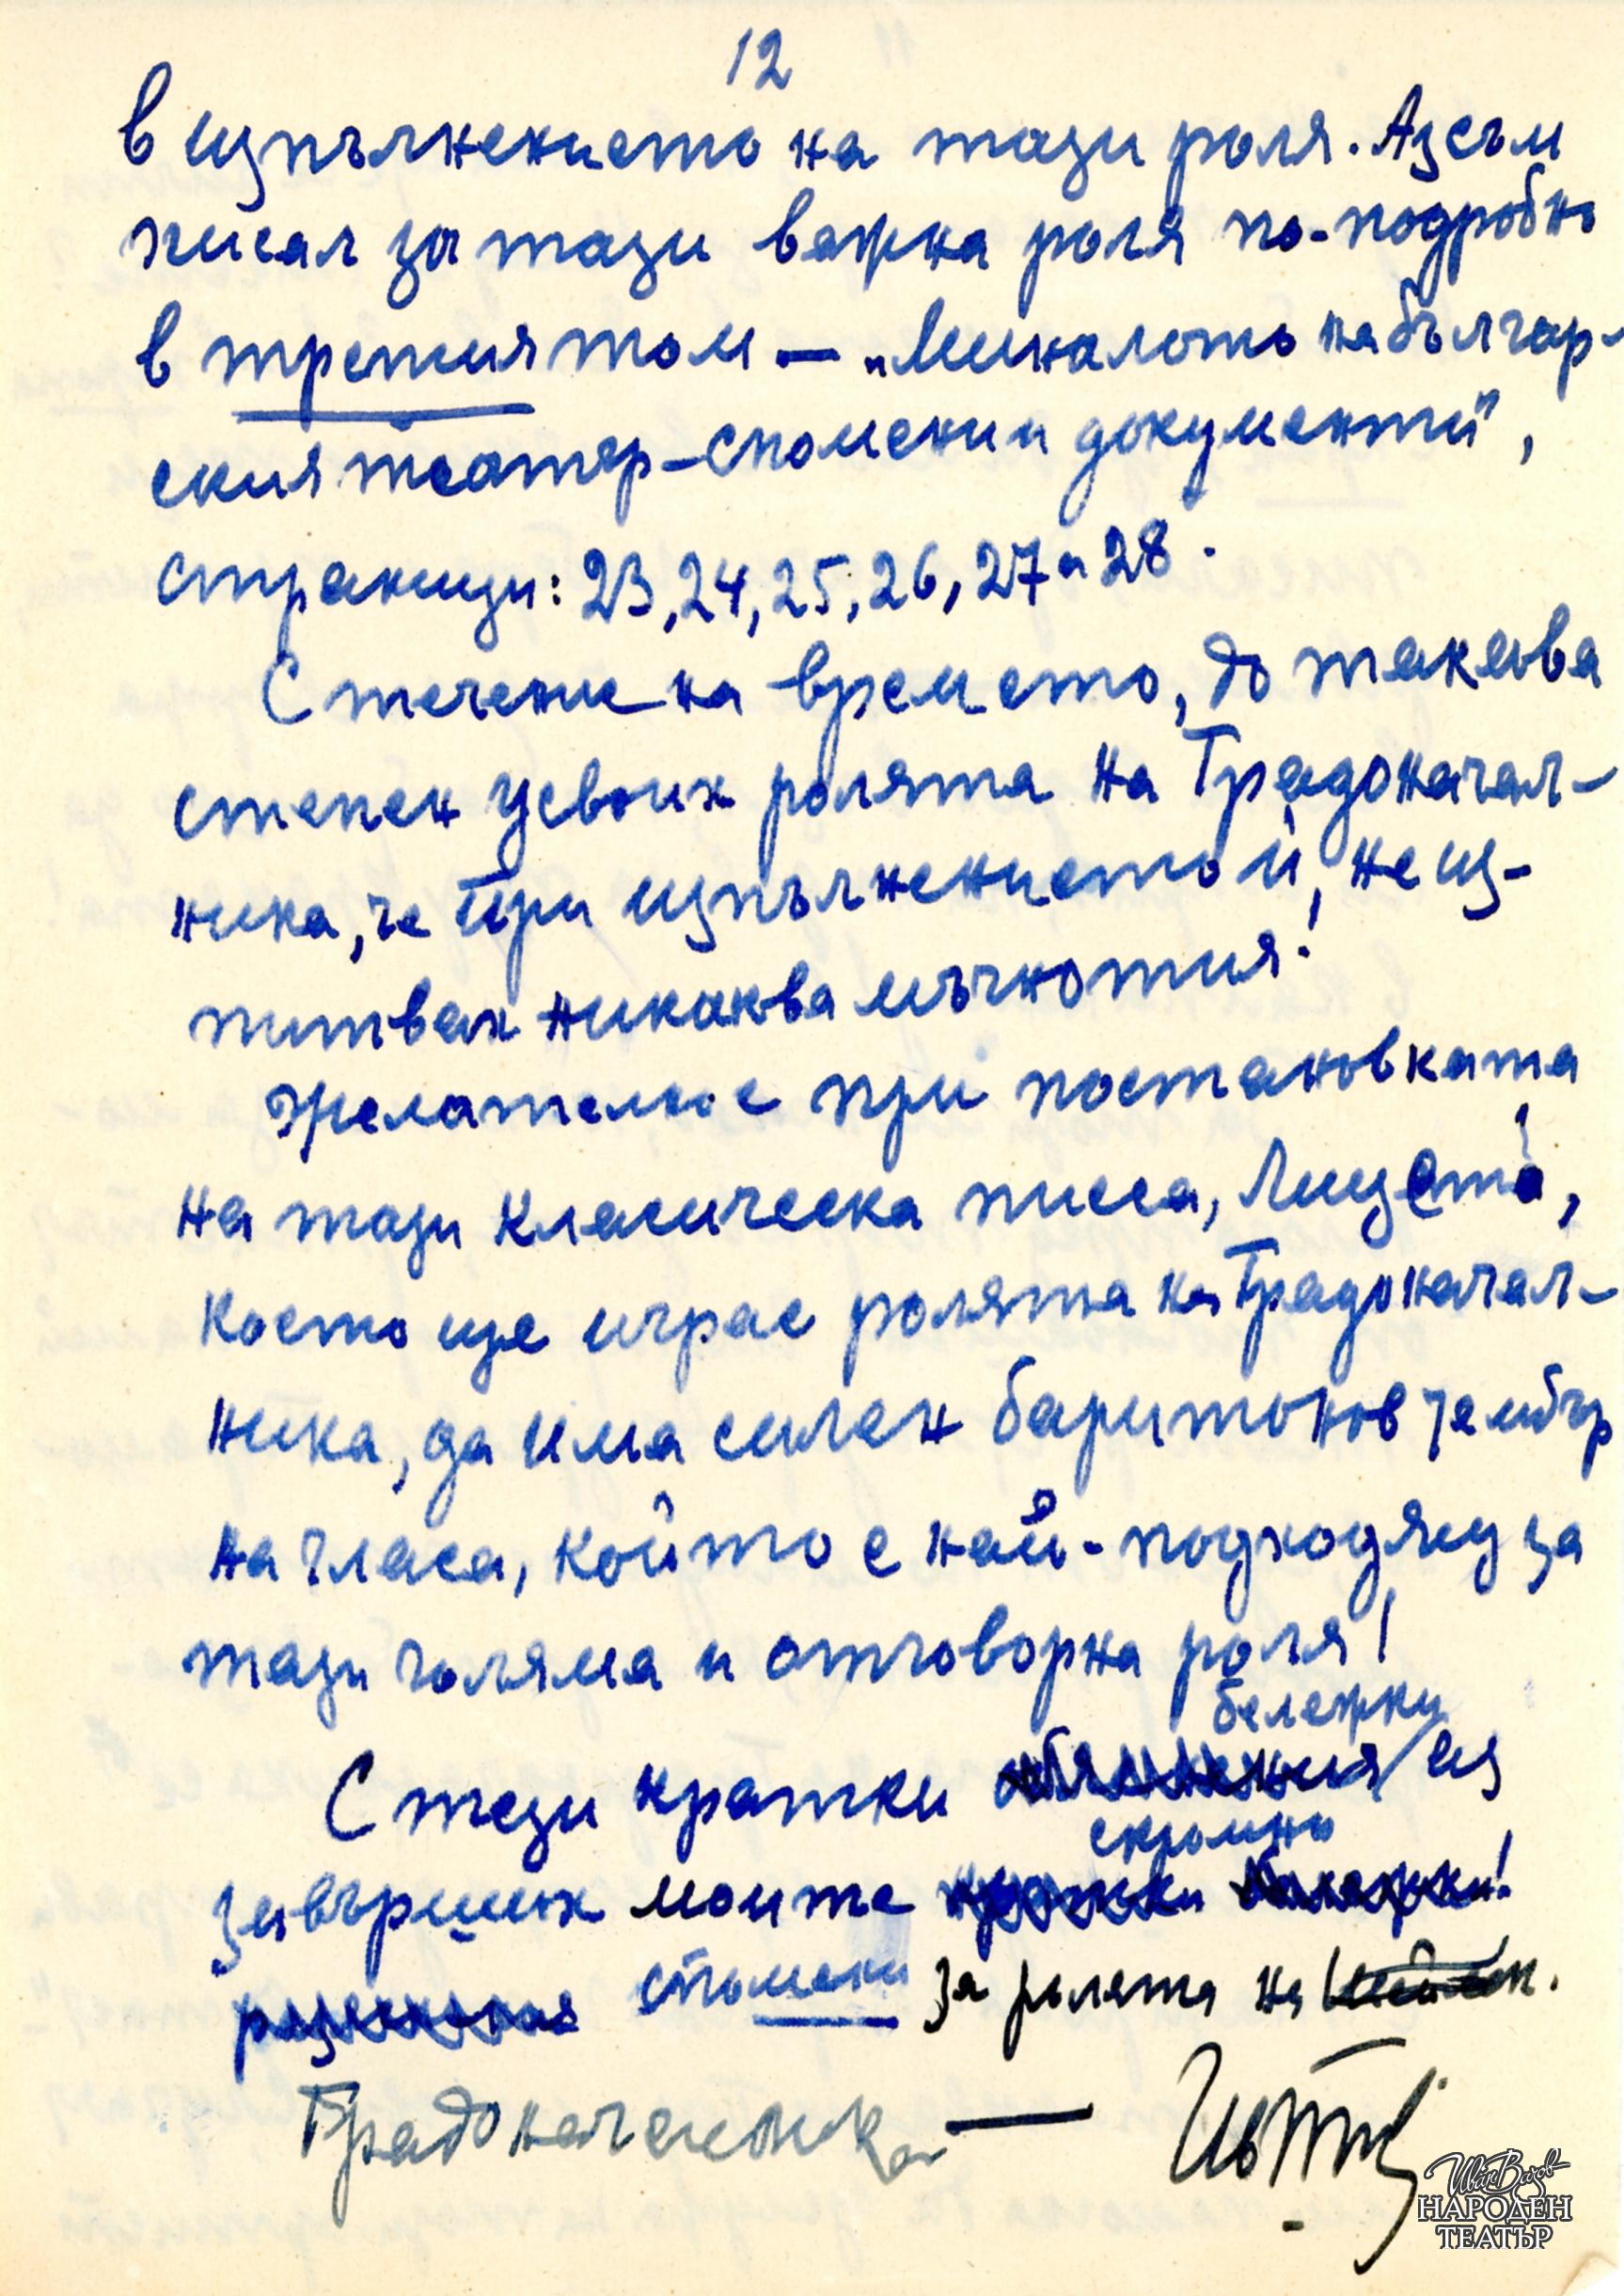 12
в изпълнението на тази роля. Аз съм
писал за тази важна роля по-подробно
в третия том — „Миналото на българ-
ския театър – спомени и документи",
страници: 23, 24, 25, 26, 27 и 28.
С течение на времето, до такава
степен усвоих ролята на Градоначал-
ника, че при изпълнението й, не из-
питвах никаква мъчнотия!
Желателно е при постановката
на тази класическа пиеса, Лицето,
което ще играе ролята на Градоначал-
ника, да има силен баритонов тембър
на гласа, който е най-подходящ за
тази голяма и отговорна роля!
бележки
С тези кратки обяснения из
скромни
завърших моите кратки бележки!
спомени за ролята на
Градоначалника —
Иван Вазов
НАРОДЕН
ТЕАТЪР